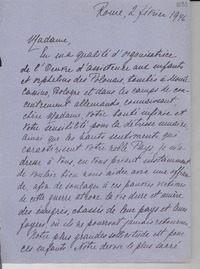 Rome, 2 février 1946
Madame,
En ma qualité d'organisatrice
de l'Oeuvre d'assistance aux enfants
et orphelins des Polonais, tombés à Monte
Cassino, Bologne et dans les camps de con-
centrement allemands connaissant,
chère Madame, votre haute enfance et
votre sensibilité pour la détresse humaine,
ainsi que les hauts sentiments qui
caractérisent votre noble Pays, je m'a-
dresse à vous, en vous priant instamment
de vouloir bien nous aider avec une offran-
de, afin de soulager à ces pauvres victimes
de cette guerre atroce la vie dure et amère
des congrès, chassés de leur pays et leurs
foyers où ils ne pourront jamais retourner.
Notre plus grande sollicitude est pour
ces enfants. Notre devoir le plus sacré